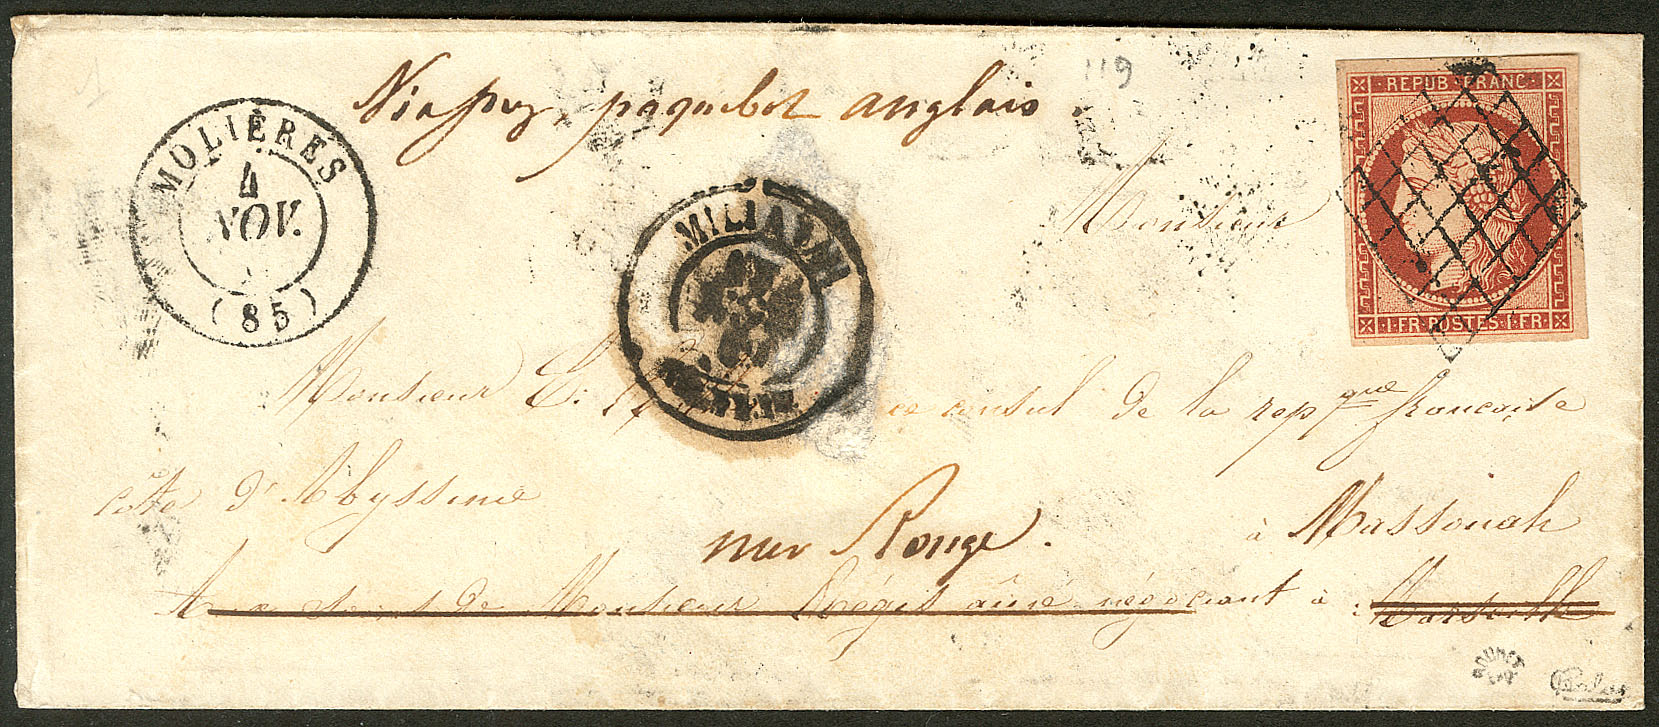 119
Via Suez, paquebot anglais.
MOLIÈRES
4
NOV.
(85)
REPUB. FRANC.
1. FR. POSTES. 1. FR.
MILIANAH
Monsieur
Monsieur consul de la repque francaise
côte d'Abyssinie
à Massouah
mer Rouge.
Aux soins de Monsieur Régis aîné négociant à Marseille